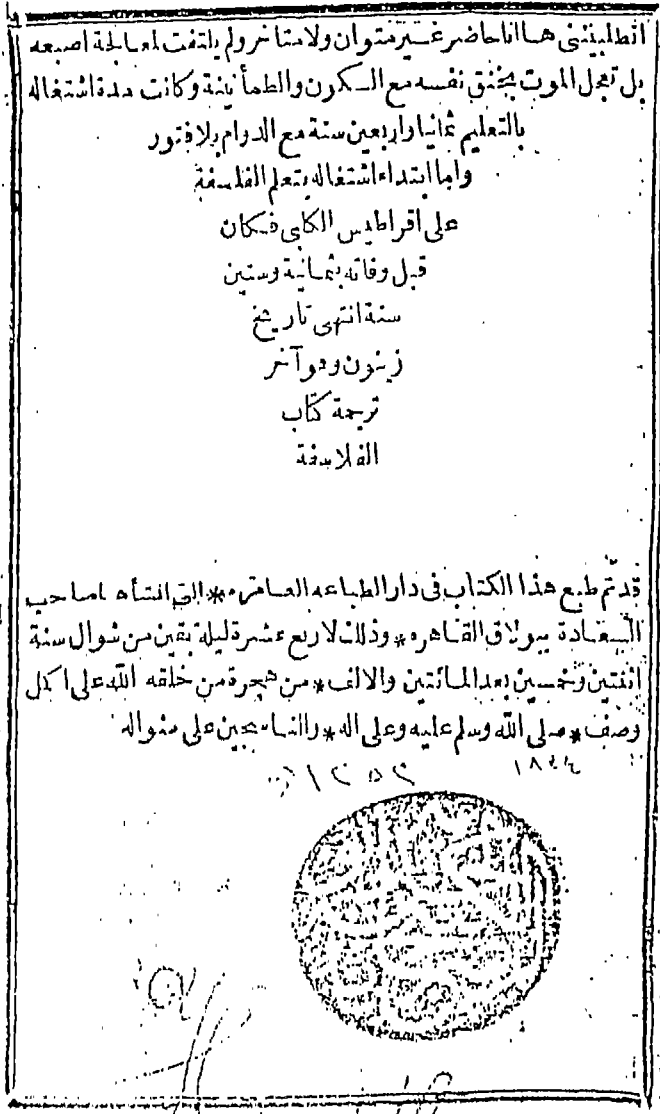 اتطلبيننى هاانا حاضر غير متوان ولا متاخر ولم يلتفت لمعالجة اصبعه
بل تعجل الموت بخنق نفسه مع السكون والطمأنينة وكانت مدة اشتغاله
بالتعليم ثمانيا واربعين سنة مع الدوام بلا فتور
واما ابتداء اشتغاله بتعلم الفلسفة
على اقراطيس الكلبى فكان
قبل وفاته بثمانية وستين
سنة انتهى تاريخ
زينون وهو آخر
ترجمة كتاب
الفلاسفة
قد تم طبع هذا الكتاب فى دار الطباعه العامره * التى انشأها صاحب
السعادة ببولاق القاهره * وذلك لاربع عشرة ليلة بقين من شوال سنة
اثنتين وخمسين بعد المائتين والالف * من هجرة من خلقه الله على اكمل
وصف * صلى الله وسلم عليه وعلى اله * والناسجين على منواله
١٢٥٢